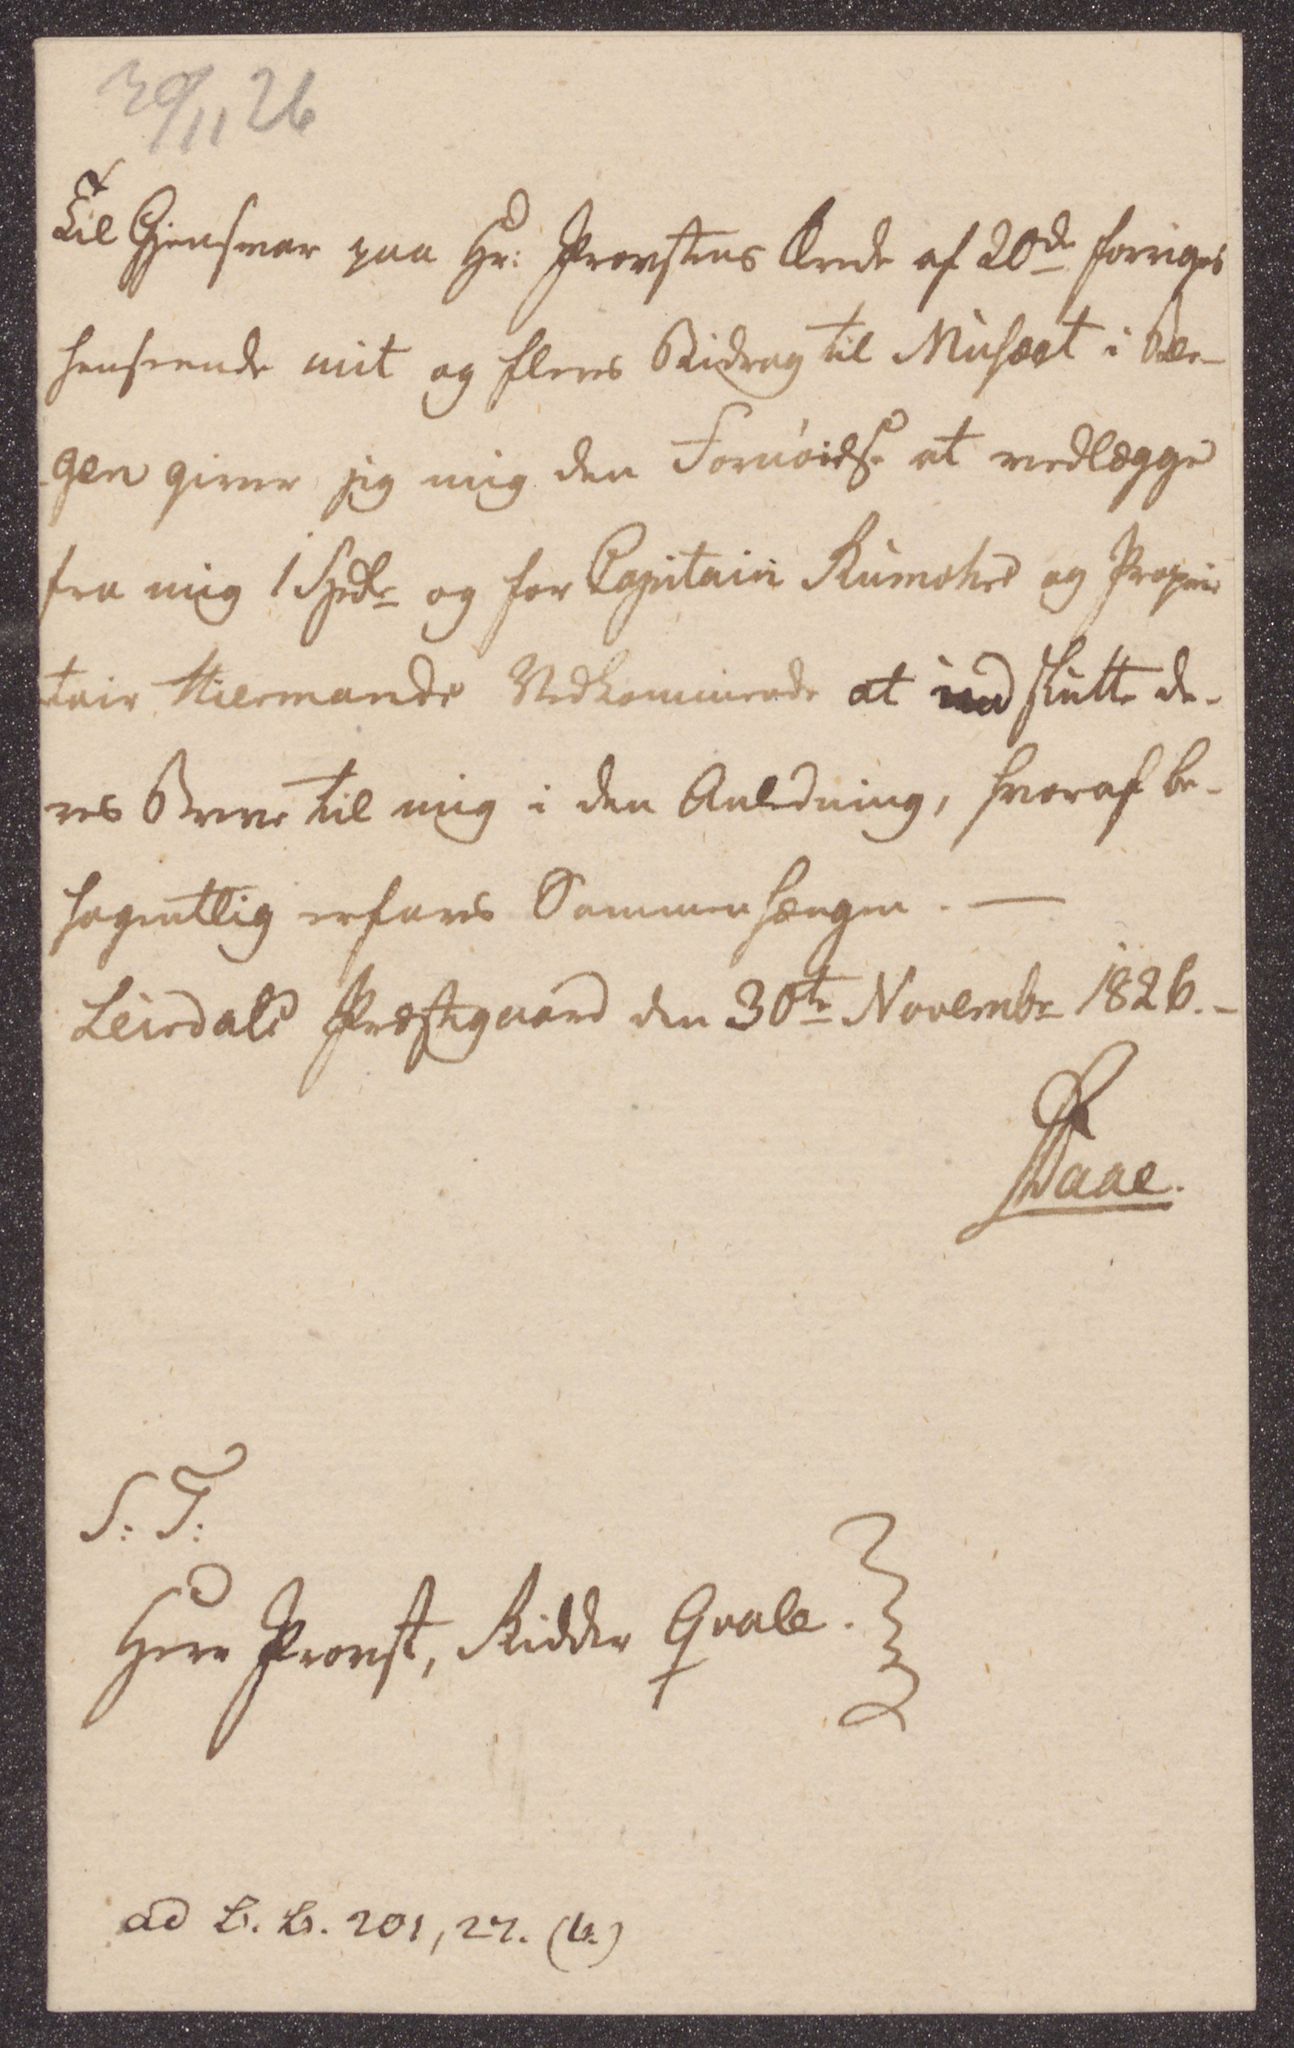 30/11 26
Til Gjensvar paa Hr: Provstens Ærede af 20de forriges
henseende mit og fleres Bidrag til Musæet i Ber-
gen giver jeg mig den Fornøielse at vedlægge
fra mig 1 Spdlr og for Capitain Rumohrs og Proprie
tair Hiermands Vedkommende at indslutte de-
res Breve til mig i den Anledning, hvoraf be-
hagentlig erfares Sammenhængen. —
Leirdals Præstegaard den 30te Novembr 1826. -
Daae.
S: T:
Herr Provst, Ridder Qvale.
ad B. B. 201, 27. (b.)